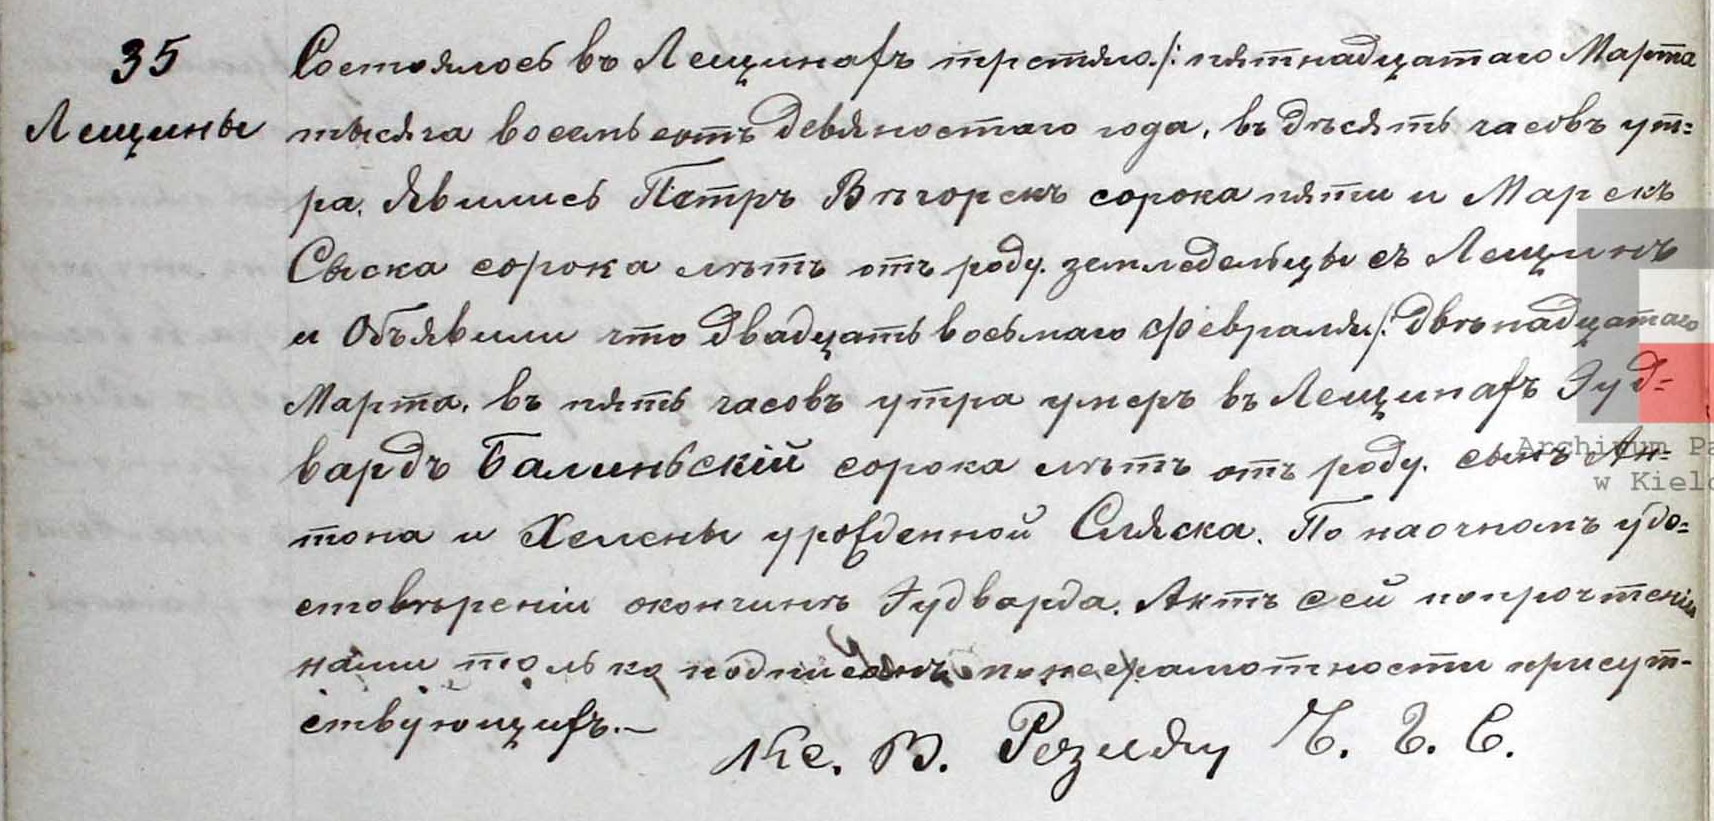 35
Лещины
Состоялось въ Лещинахъ третяго /: пятнадцатаго Марта
тысяча восемьсотъ девяностаго года, въ десять часовъ ут=
ра. Явились Петръ Вѣгорекъ сорока пяти и Марекъ
Сыска сорока лѣтъ отъ роду. земледельцы съ Лещинъ
и Объявили что двадцать восьмаго февраля /: двѣнадцатаго
Марта, въ пять часовъ утра умеръ въ Лещинахъ Эуд=
вардъ Балиньскій сорока лѣтъ отъ роду. сынъ Ан=
тона и Хелены урожденной Сляска. По наочномъ удо=
стовѣреніи окончинѣ Эудварда. Актъ сей попрочтеніи
нами только подписанъ понеграмотности присут-
ствующихъ.—
Кс. В. Резиляу Ч. Г. С.
Archiwum Pa
w Kielc